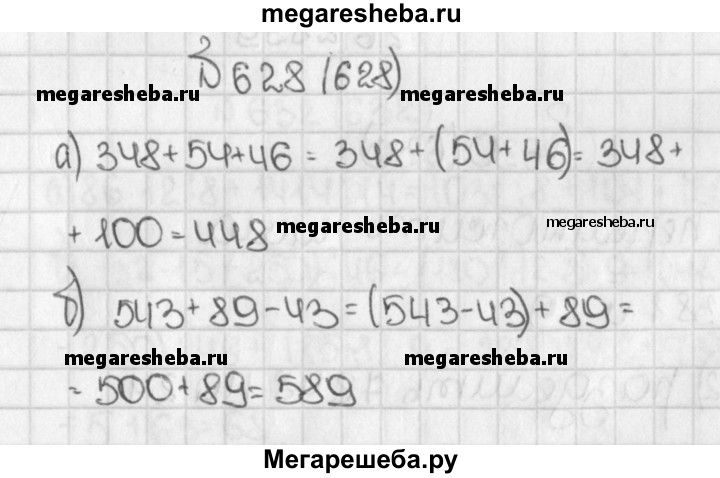 megaresheba.ru
№ 628 (628)
megaresheba.ru megaresheba.ru
а) 348 + 54 + 46 = 348 + (54 + 46) = 348 +
+ 100 = 448 megaresheba.ru megaresheba.ru
б) 543 + 89 - 43 = (543 - 43) + 89 =
megaresheba.ru megaresheba.ru
= 500 + 89 = 589
Мегарешеба.ру